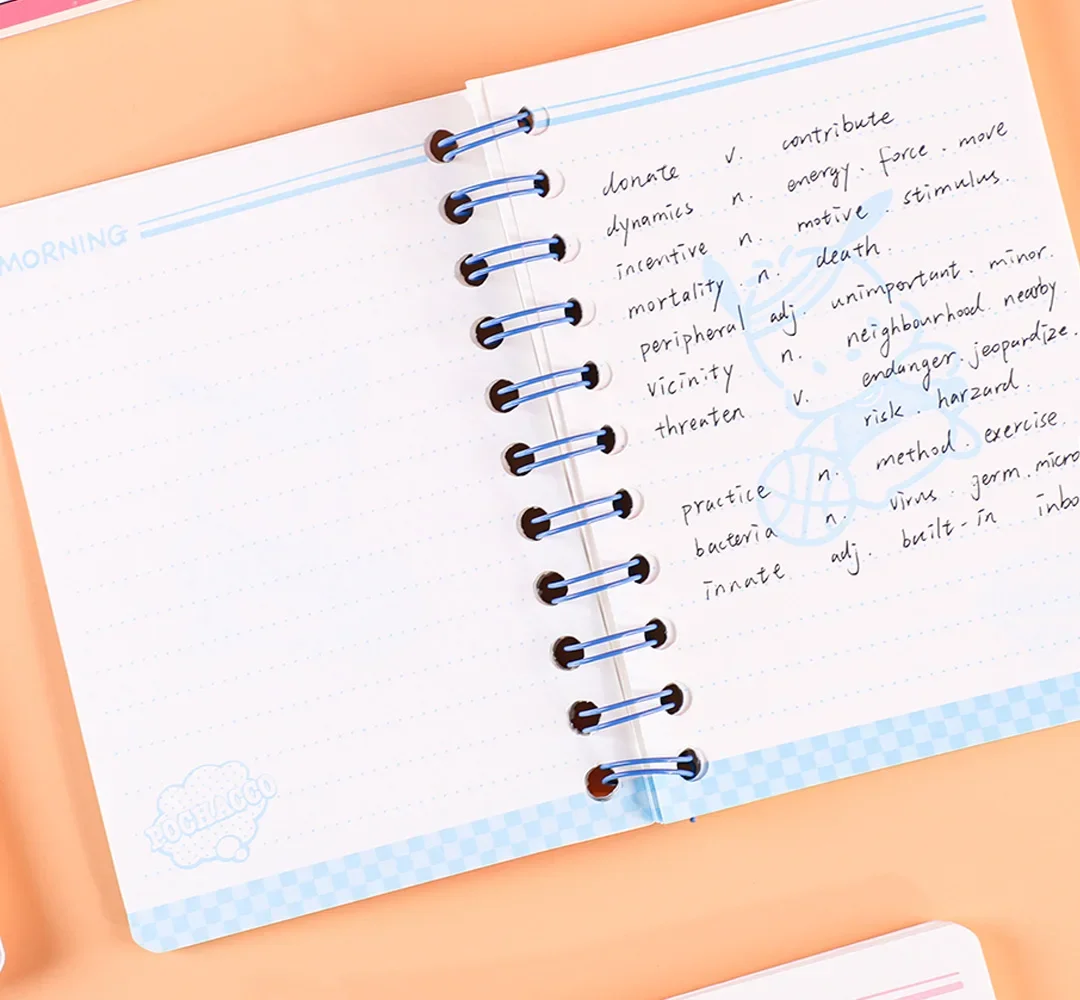 MORNING
POCHACCO
donate v. contribute
dynamics n. energy. force. move
incentive n. motive. stimulus.
mortality n. death.
peripheral adj. unimportant. minor.
vicinity n. neighbourhood nearby.
threaten v. endanger. jeopardize.
risk. harzard.
practice n. method. exercise.
bacteria n. virus. germ. micro
innate adj. built-in inbo